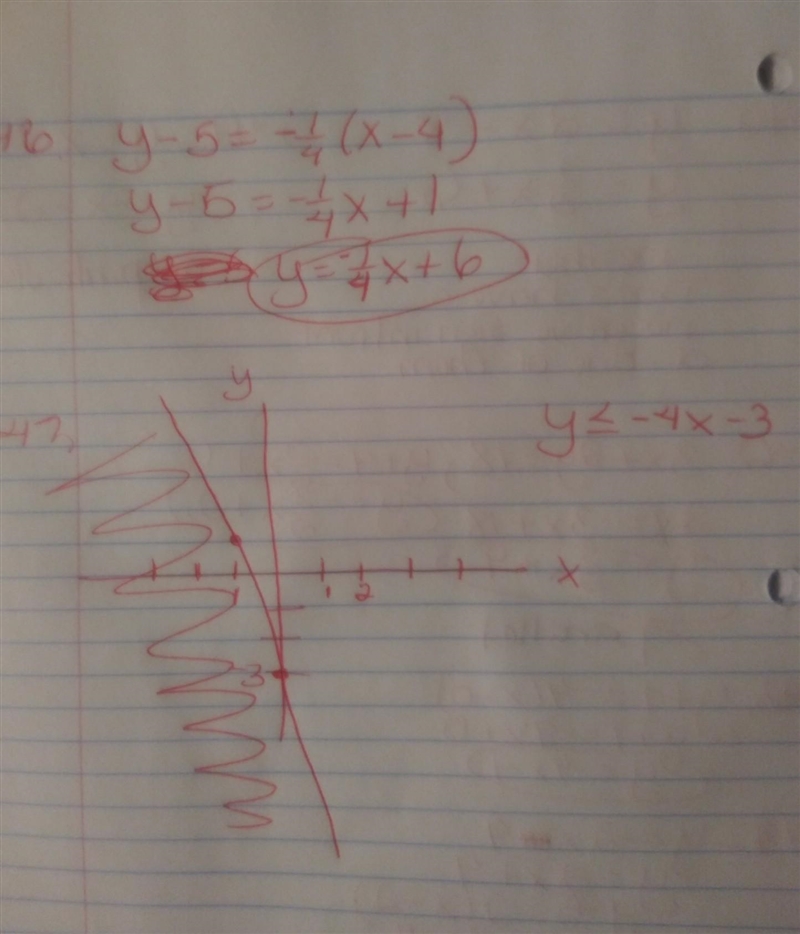 16. y-5=-1/4(x-4)
y-5=-1/4x+1
y=-1/4x+6
y
47.
y≤-4x-3
x
1 2
3